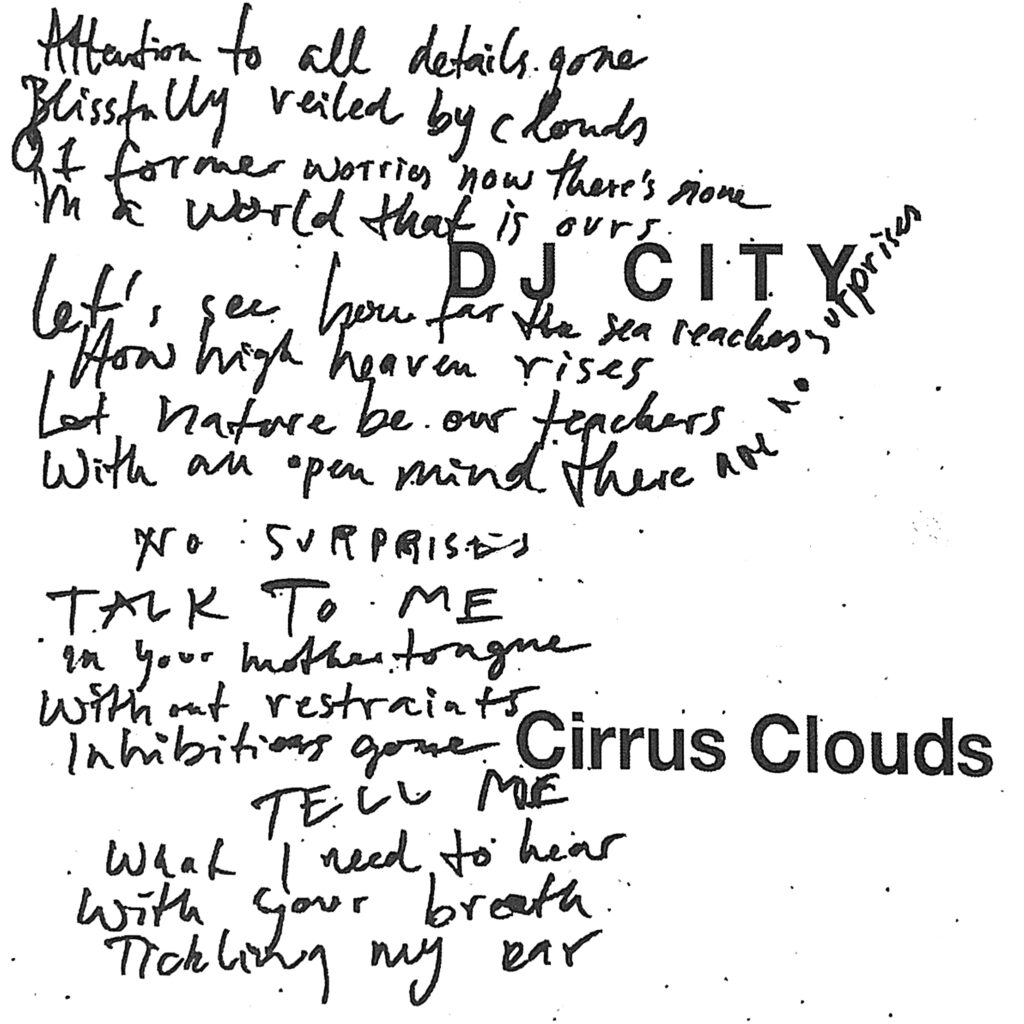 Attention to all details gone
Blissfully veiled by clouds
Of former worries now there's none
In a world that is ours
DJ CITY
Let's see how far the sea reaches
How high heaven rises
Let nature be our teachers
With an open mind there are no surprises
NO SURPRISES
TALK TO ME
In your mother tongue
Without restraints
Inhibitions gone
Cirrus Clouds
TELL ME
What I need to hear
With your breath
Tickling my ear